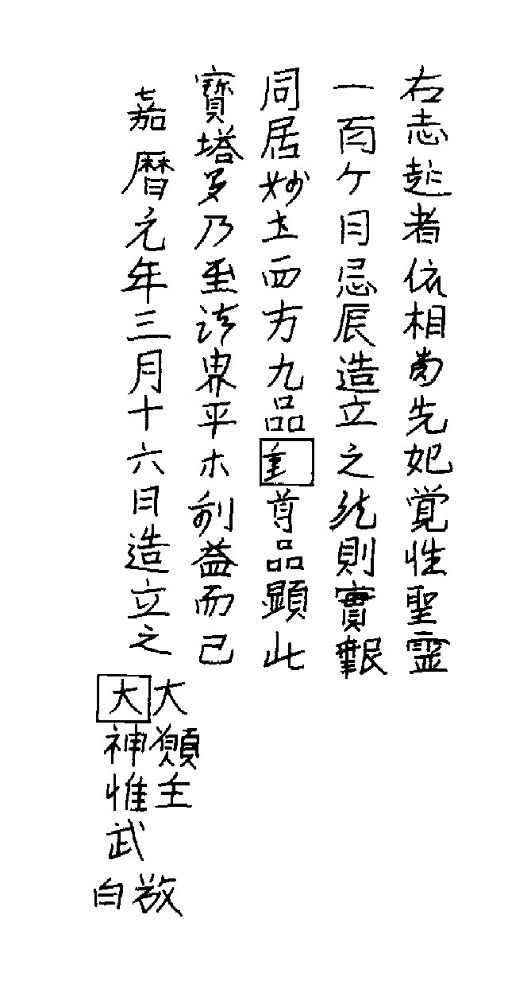 右志趣者依相當先妣覚性聖霊
一百ケ日忌辰造立之然則實艱
同居妙土西方九品重尊品顕此
寳塔多乃至法界平ホ利益而已
嘉暦元年三月十六日造立之
大願主
大神惟武
敬白